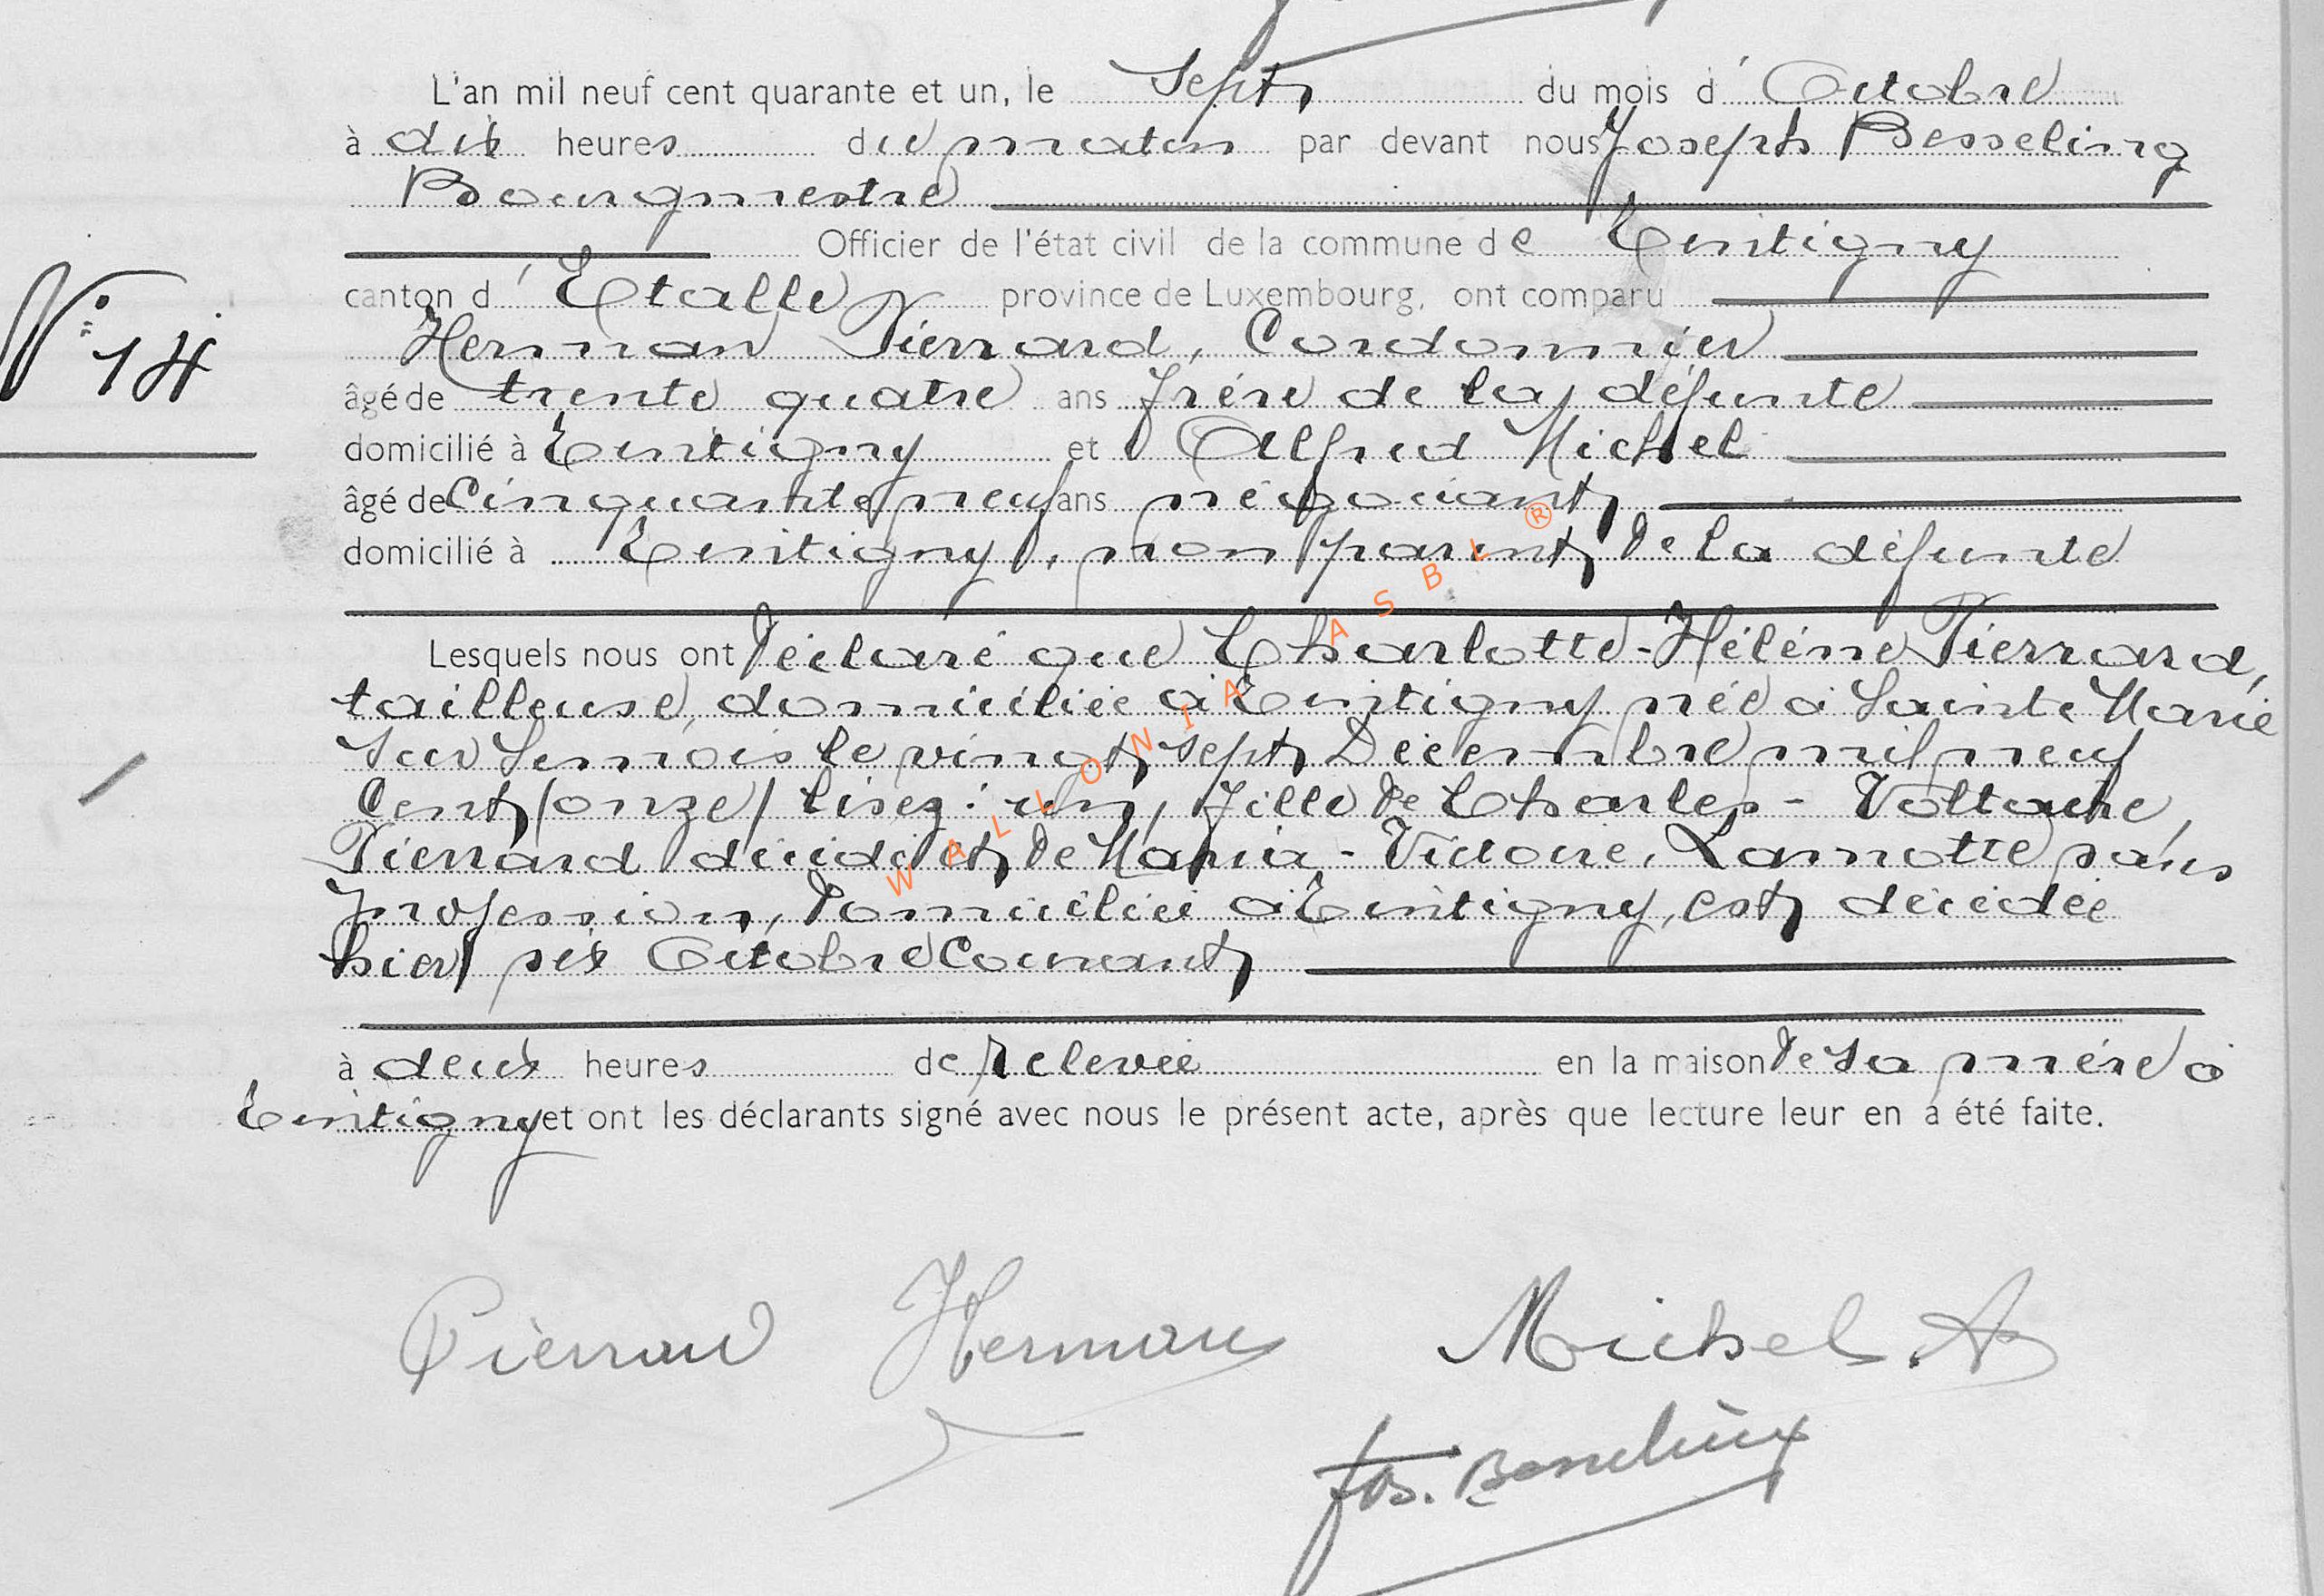 L'an mil neuf cent quarante et un, le Sept du mois d'Octobre
à dix heures du matin par devant nous Joseph Besseling
Bourgmestre
Officier de l'état civil de la commune de Tintigny
canton d'Etalle province de Luxembourg, ont comparu
N° 14
Herman Pierrard, Cordonnier
âgé de trente quatre ans frère de la défunte
domicilié à Tintigny et Alfred Michel
âgé de Cinquante neuf ans négociant
domicilié à Tintigny, non parent de la défunte
Lesquels nous ont déclaré que Charlotte-Hélène Pierrard,
tailleuse, domiciliée à Tintigny née à Sainte Marie
Sur Semois le vingt sept Décembre mil neuf
Cent (onze) lisez : un, fille de Charles - Voltaire,
Pierrard décédé et de Maria - Victoire, Lamotte sans
profession, domiciliée à Tintigny, est décédée
hier six Octobre Courant
à deux heures de relevée en la maison de sa mère à
Tintigny et ont les déclarants signé avec nous le présent acte, après que lecture leur en a été faite.
Pierrard Herman Michel A
Jos. Besseling
WALLONIA ASBL ®